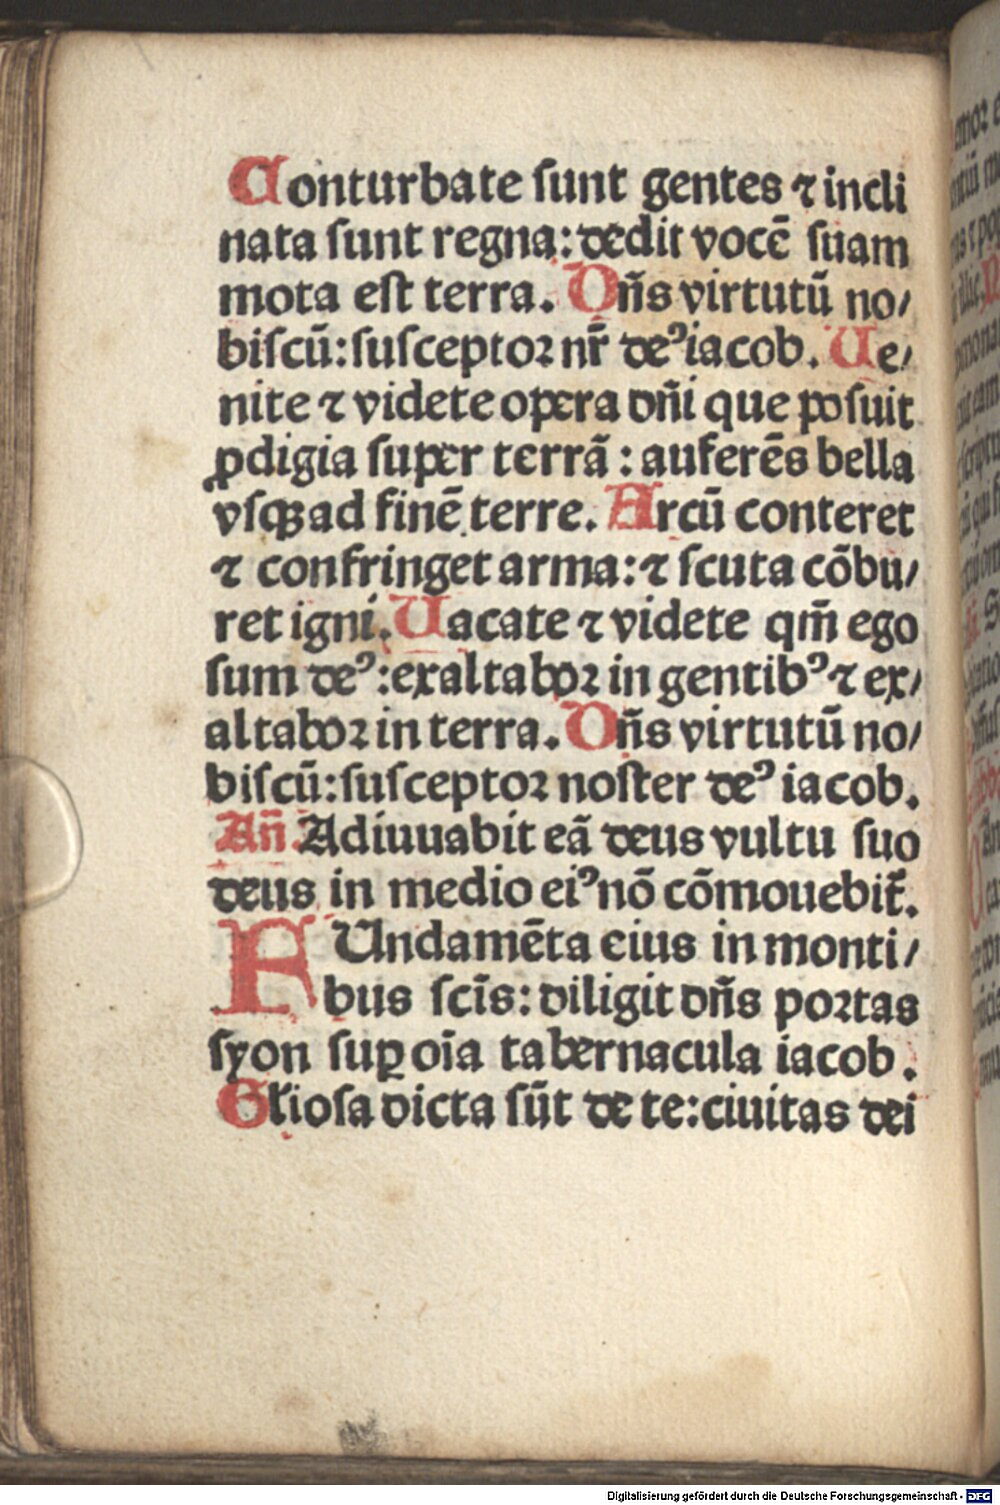 Conturbate sunt gentes ⁊ incli
nata sunt regna: dedit vocē suam
mota est terra. Dn̄s virtutū no/
biscū: susceptoꝛ nr̄ deꝰ iacob. Ue/
nite ⁊ videte opera dn̄i que posuit
ꝓdigia super terrā: auferēs bella
vsqꝫ ad finē terre. Arcū conteret
⁊ confringet arma: ⁊ scuta cōbu/
ret igni. Uacate ⁊ videte qm̄ ego
sum deꝰ: exaltaboꝛ in gentibꝰ ⁊ ex/
altaboꝛ in terra. Dn̄s virtutū no/
biscū: susceptoꝛ noster deꝰ iacob.
An̄. Adiuuabit eā deus vultu suo
deus in medio eiꝰ nō cōmouebit̄.
FUndamēta eius in monti/
bus scīs: diligit dn̄s poꝛtas
syon suꝑ oīa tabernacula iacob.
Gl̄iosa dicta sūt de te: ciuitas dei
Digitalisierung gefördert durch die Deutsche Forschungsgemeinschaft - DFG